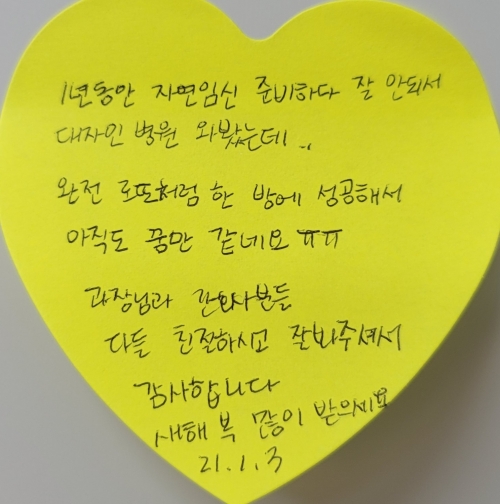 1년동안 자연임신 준비하다 잘 안되서
대자인 병원 와봤는데..
완전 로또처럼 한 방에 성공해서
아직도 꿈만 같네요 ㅠㅠ
과장님과 간호사분들
다들 친절하시고 잘봐주셔서
감사합니다
새해 복 많이 받으세요
21.1.3